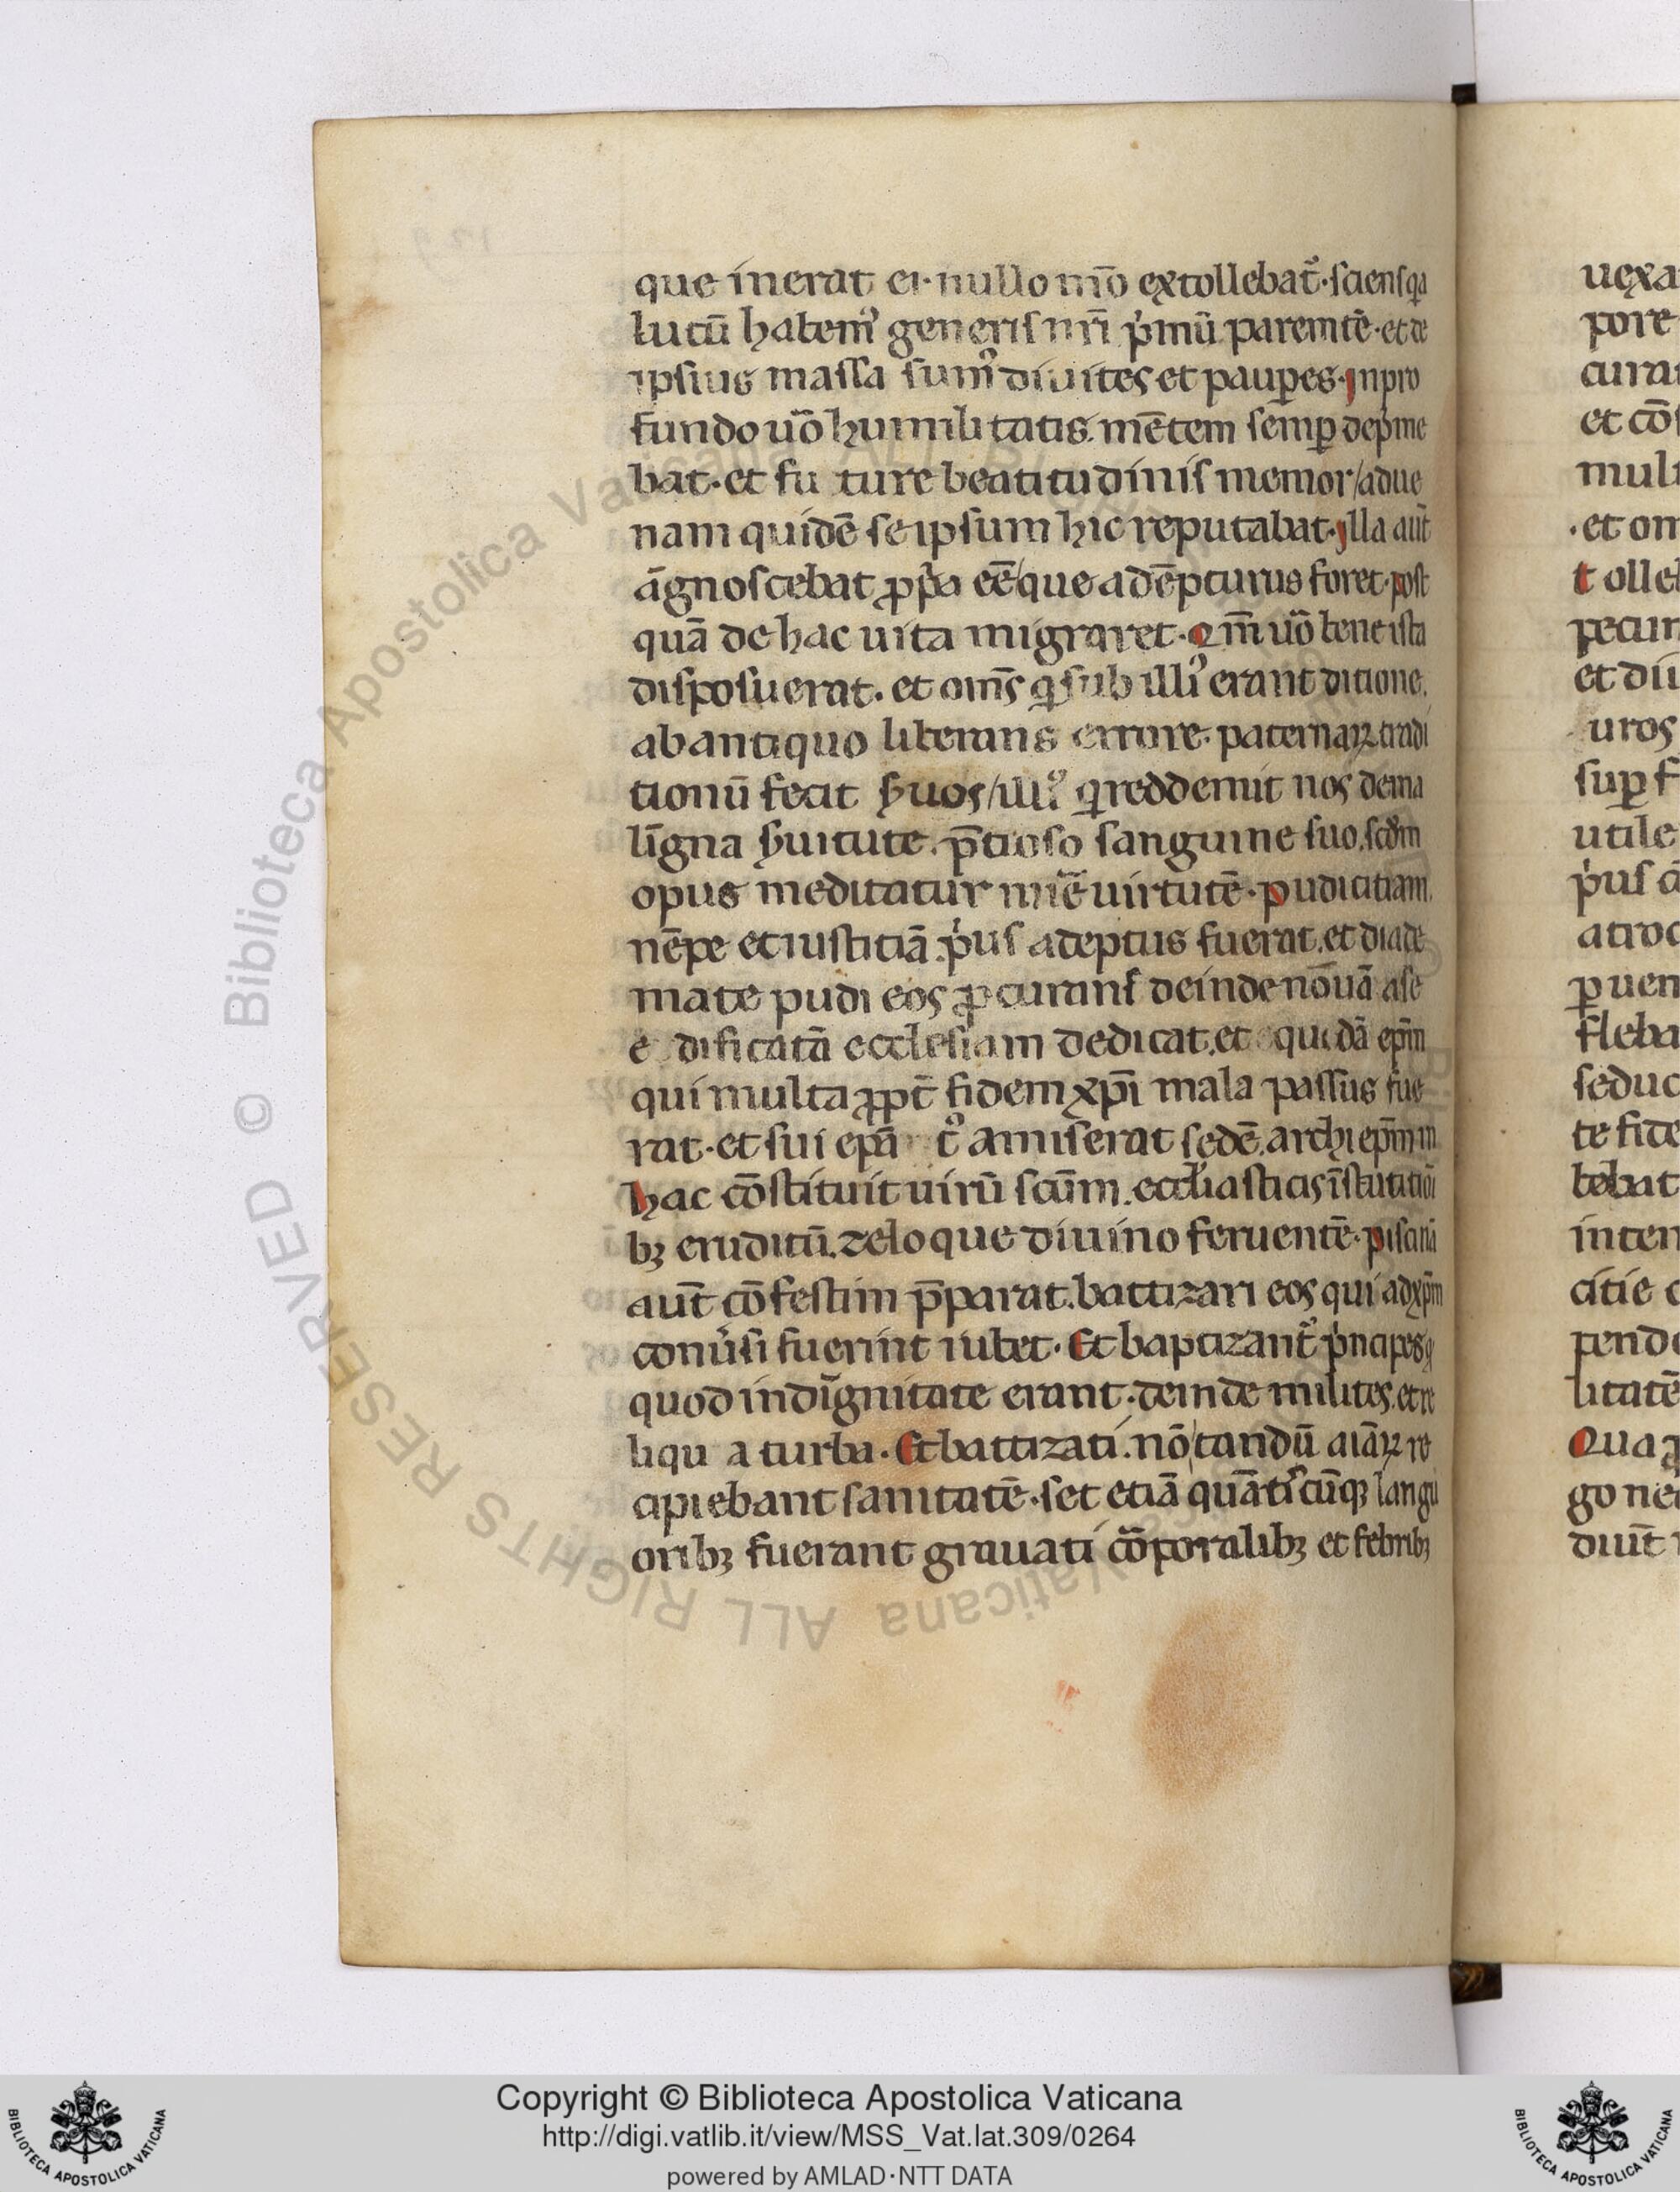 que inerat ei· nullo mō extollebat᷑·sciens qa
lutū habem᷒ generis nr̄i pͥmū paremtē·et de
ipsius massa sum᷒ diuites et paup̲es·jnpro
fundo uō humilitatis. mētem semp̲ depͥme
bat·et fu ture beatitudinis memor/adue
nam quidē se ipsum hic reputabat·jlla aut̄
āgnoscebat ꝓpͥa eē/que adēpturus foret·post
quā de hac uita migraret·Qm̄ uō bene ista
disposuerat. et om̄s qͥ sub illi᷒ erant ditione.
ab antiquo liberans errore· paternaꝝ tradi
tionū fecit ẜuos/illi᷒ qͥ reddemit nos de ma
līgna ẜuitute. p̄tioso sanguine suo.scd̄m
opus meditatur mīe uirtutē·pudicitiam.
nēpe et iustitiā.pͥus adeptus fuerat.et diade
mate pudi eos ꝓcurans deinde nōuā a se
e dificatā ecclesiam dedicat.et quēdā ep̄m
qui multa ꝓpt̄ fidem xp̄i mala passus fue
rat·et sui ep̄a t᷒ amiserat sedē.archiep̄m in
hac cōstituit uirū scūm.eccl̄iasticis īstitutiōi
bꝫ eruditū.zeloque diuino feruentē·piscinā
aut̄ cōfestim p̄parat.battizari eos qui ad xp̄m
conu̓si fuerint iubet· Et baptizant᷑ pͥncipes qͥ
quod in dīgnitate erant·deinde milites.et re
liqu a turba·Et battizati.nō tandū aīaꝝ re
cipiebant sanitatē·set etiā quātiscūqꝫ langu
oribꝫ fuerant grauati cōporalibꝫ et febribꝫ
uexa
pore
curat
et cōs
mult
·et om
tolleb
pecun
et diu
uros
sup̲ f
utile
pͥus a
atroc
p̲uen
fleba
seduc
te fide
bebat
inten
citie
pendo
litatē
Quap̲
go ne
diut̄
Copyright © Biblioteca Apostolica Vaticana
http://digi.vatlib.it/view/MSS_Vat.lat.309/0264
powered by AMLAD·NTT DATA
BIBLIOTECA APOSTOLICA VATICANA
BIBLIOTECA APOSTOLICA VATICANA
© Biblioteca Apostolica Vaticana ALL RIGHTS RESERVED